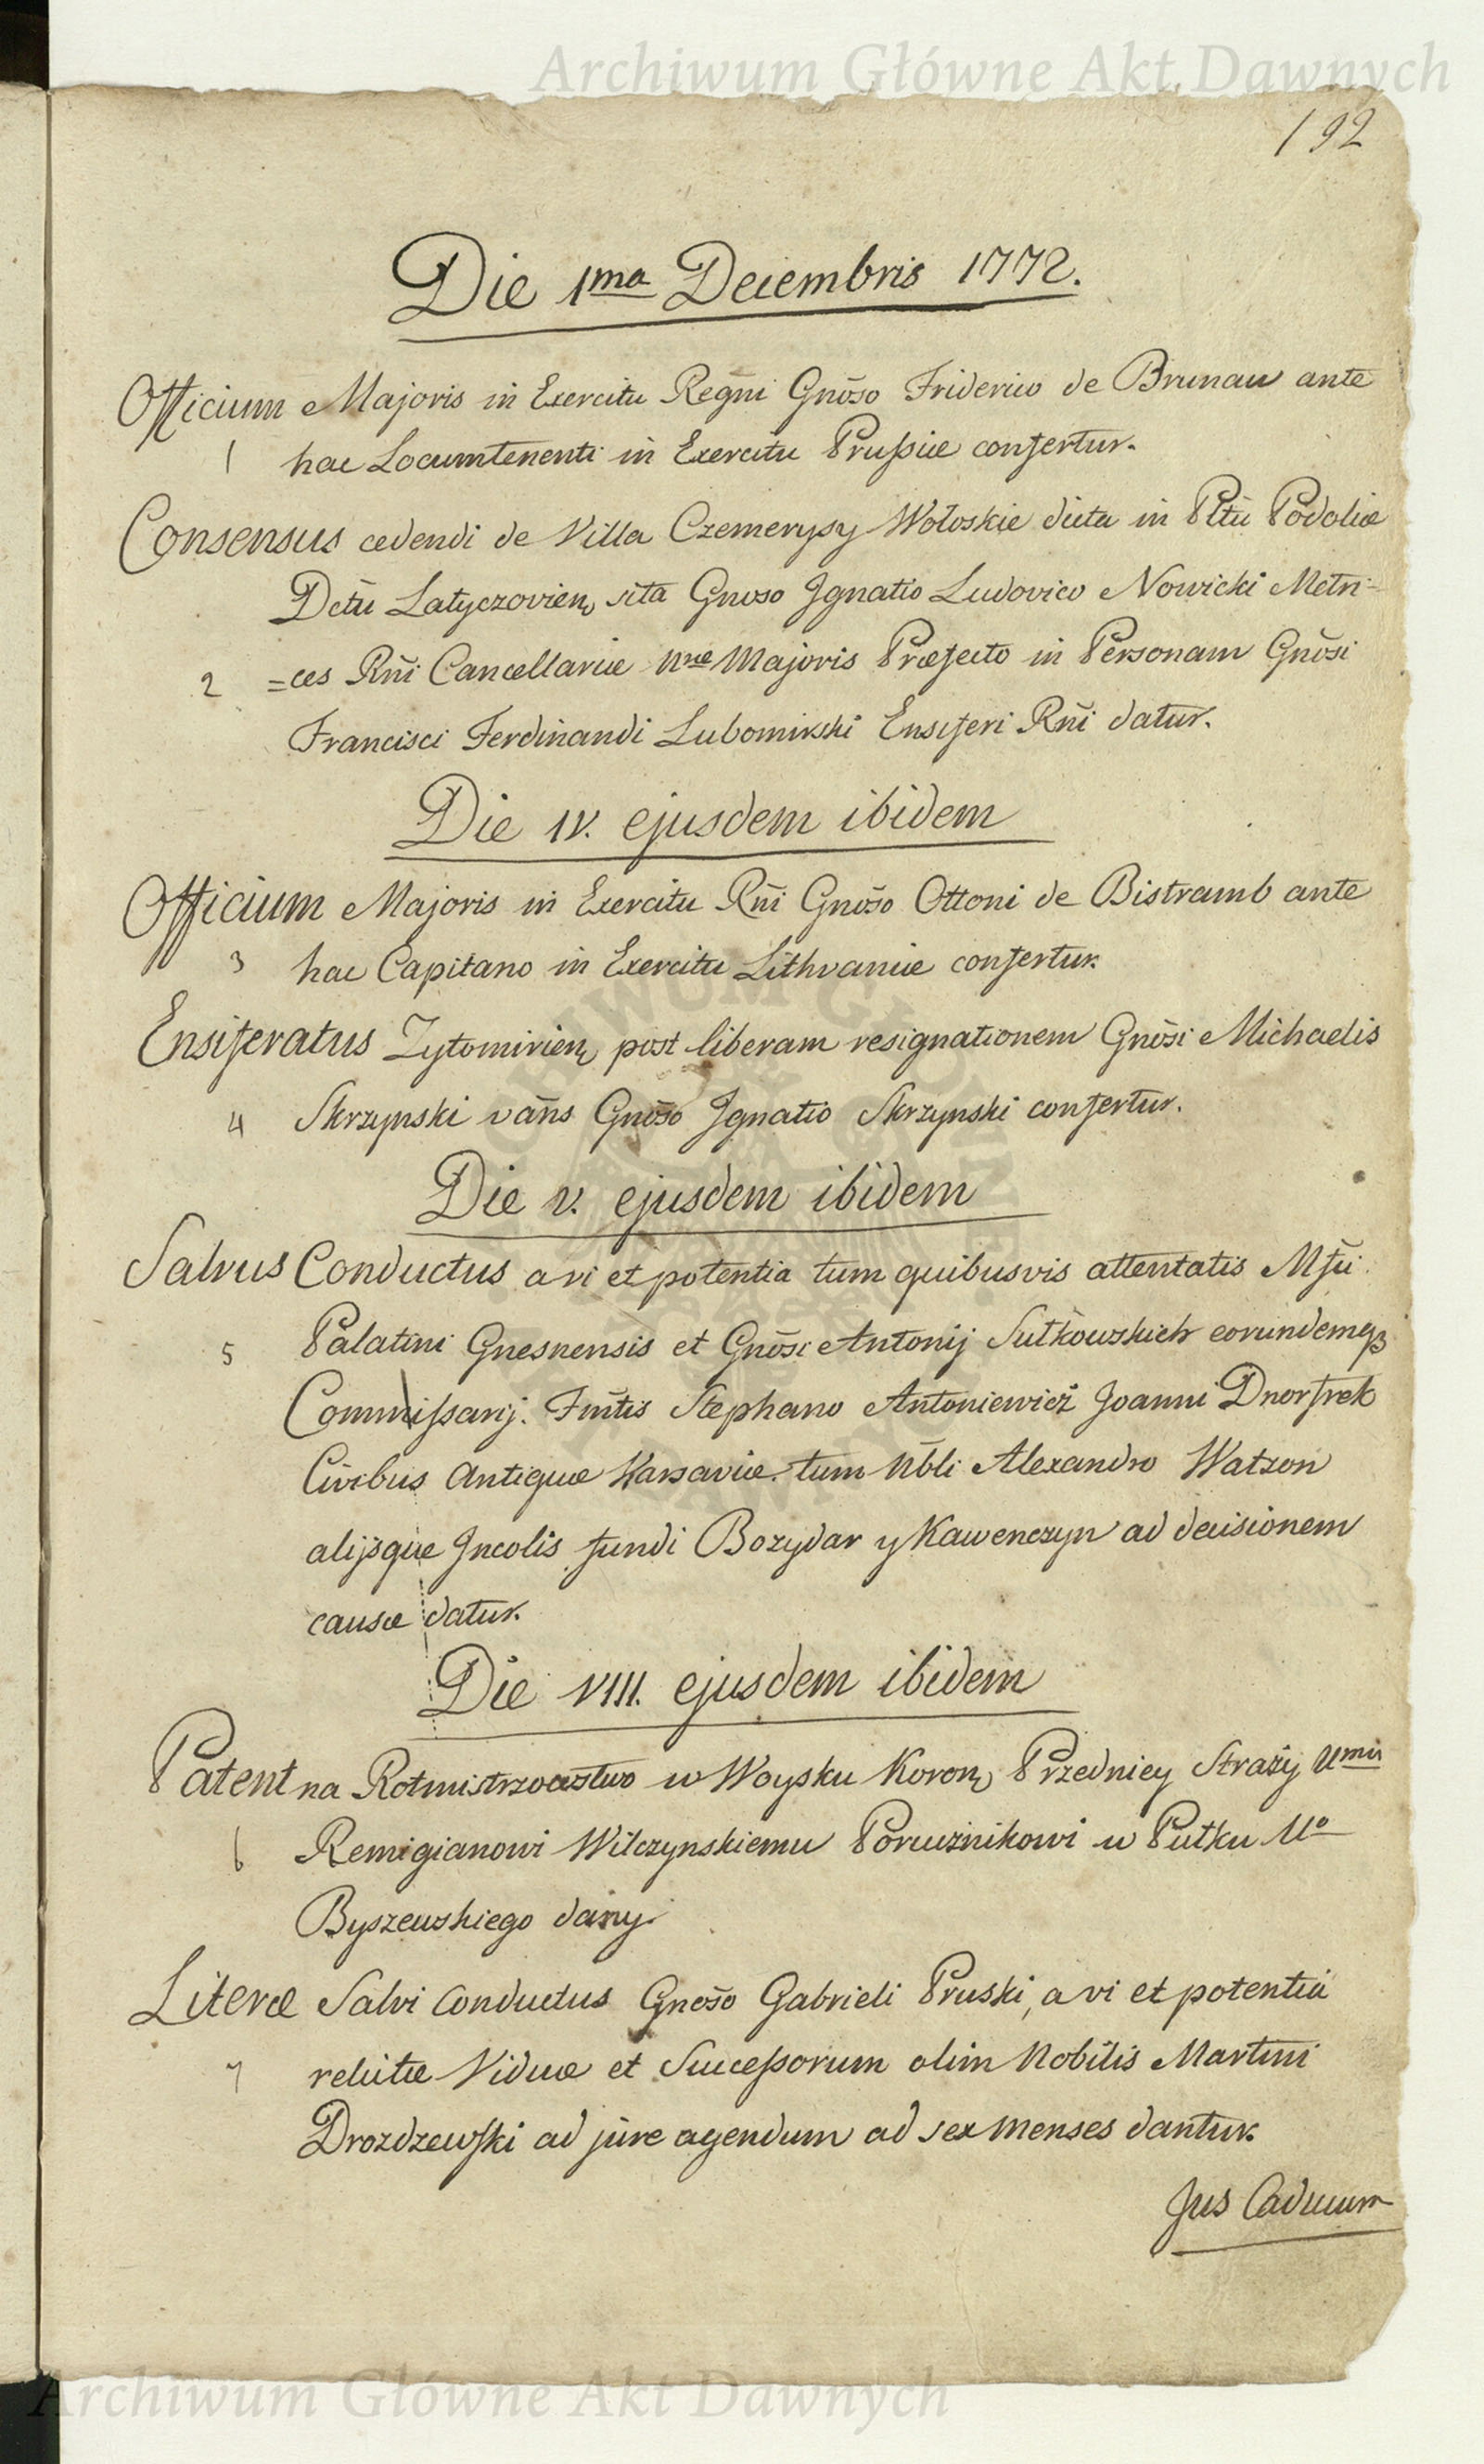 Archiwum Główne Akt Dawnych
192
Die 1ma Decembris 1772.
Officium Majoris in Exercitu Regni Gnõso Friderico de Brunau ante
1 hac Locumtenenti in Exercitu Prussiæ confertur.
Consensus cedendi de Villa Czemerysy Wołoskie dicta in Pltũ Podoliæ
Dctũ Latyczovien, sita Gnoso Jgnatio Ludovico Nowicki Metri-
2 =ces Rñi Cancellariæ nræ Majoris Præfecto in Personam Gnõsi
Francisci Ferdinandi Lubomirski Ensiferi Rñi datur.
Die IV. ejusdem ibidem
Officium Majoris in Exercitu Rñi Gnõso Ottoni de Bistramb ante
3 hac Capitano in Exercitu Lithvaniæ confertur.
Ensiferatus Zytomirien, post liberam resignationem Gnõsi Michaelis
4 Skrzynski vañs Gnõso Jgnatio Skrzynski confertur.
Die V. ejusdem ibidem
Salvus Conductus a vi et potentia tum quibusvis attentatis Mfũ
5 Palatini Gnesnensis et Gnõsi Antonij Sułkowskich eorundemq3
Commissarij. Fmtis Stephano Antoniewicz Joanni Dnorfrek
Civibus Antiquæ Varsaviæ. tum Nbli Alexandro Watson
alijsque Jncolis fundi Bozydar y Kawenczyn ad decisionem
causæ datur.
Die VIII. ejusdem ibidem
Patent na Rotmistrzowstwo w Woysku Koron, Przedniey Strazy Umu
6 Remigianowi Wilczynskiemu Porucznikowi w Pułku Uo
Byszewskiego dany.
Literæ Salvi Conductus Gnoso Gabrieli Pruski, a vi et potentia
7 relictæ Viduæ et Successorum olim Nobilis Martini
Drozdzewski ad jure agendum ad sex menses dantur.
Jus Caducum
Archiwum Główne Akt Dawnych